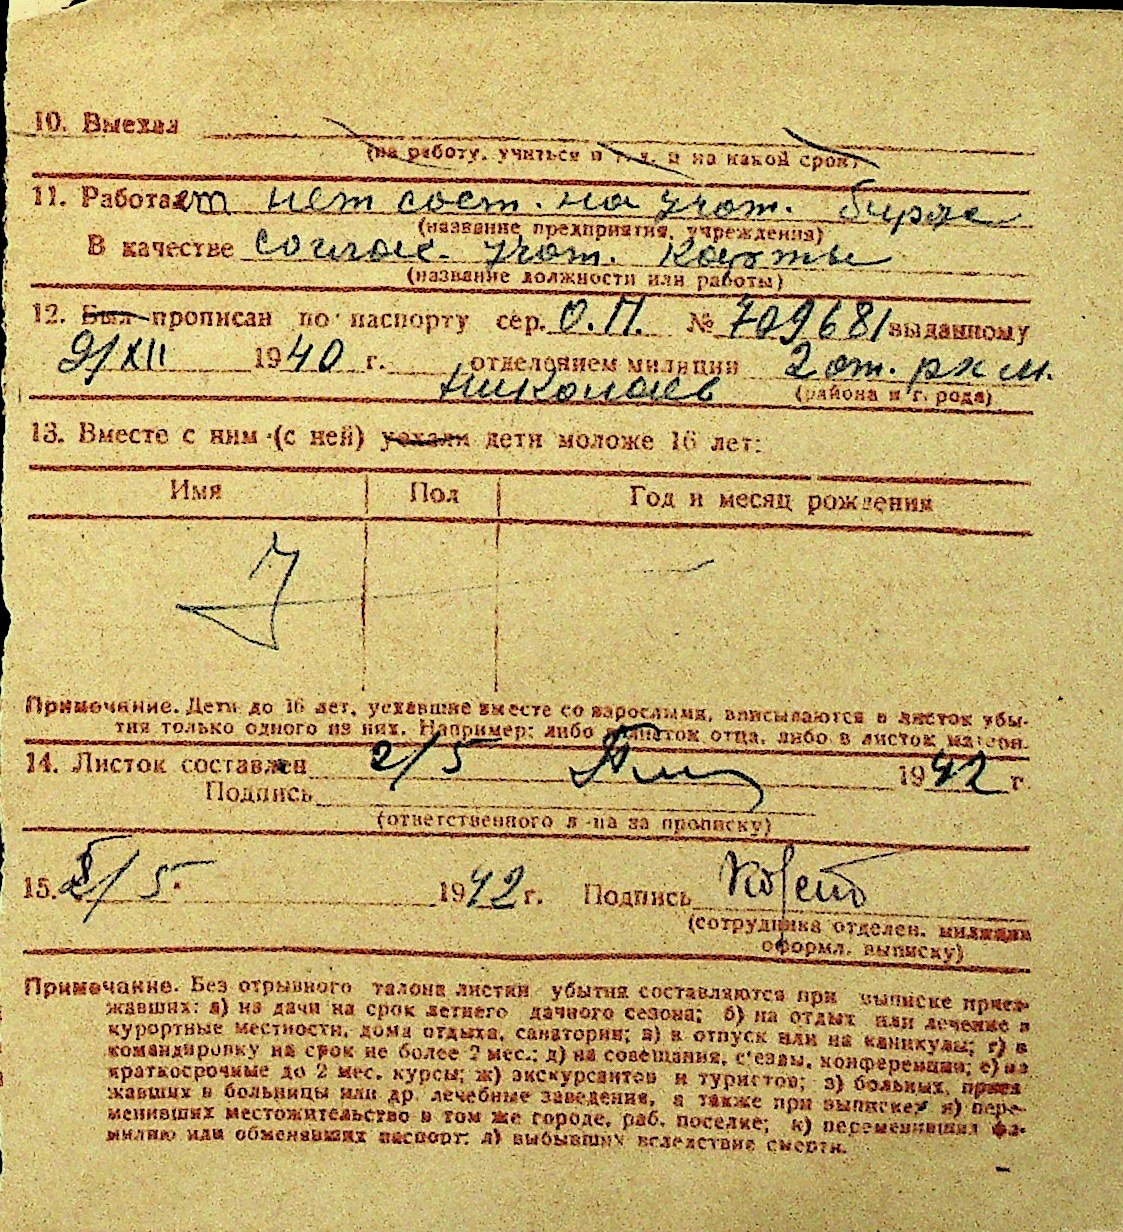 10. Выехал
(на работу, учиться и т. д. и на какой срок)
11. Работает нет сост. на учот. бирже
(название предприятия, учреждения)
В качестве соглас. учот. карты
(название должности или работы)
12. Был прописан по паспорту сер. О.П. № 709681 выданному
9/XII 1940 г. отделением милиции 2 от. рк м.
Николаев (района и г. рода)
13. Вместе с ним (с ней) уехали дети моложе 16 лет:
Имя Пол Год и месяц рождения
Примечание. Дети до 16 лет, уехавшие вместе со взрослыми, вписываются в листок убы-
тия только одного из них. Например: либо в листок отца, либо в листок матери.
14. Листок составлен 2/5 1942 г.
Подпись
(ответственного л-ца за прописку)
15. 5/5. 1942 г. Подпись
(сотрудника отделен. милиции
оформл. выписку)
Примечание. Без отрывного талона листки убытия составляются при выписке приез-
жавших: а) на дачи на срок летнего дачного сезона; б) на отдых или лечение в
курортные местности, дома отдыха, санатории; в) в отпуск или на каникулы; г) в
командировку на срок не более 2 мес.; д) на совещания, с'езды, конференции; е) на
краткосрочные до 2 мес. курсы; ж) экскурсантов и туристов; з) больных, приез
жавших в больницы или др. лечебные заведения, а также при выписке: и) пере-
менивших местожительство в том же городе, раб. поселке; к) переменивших фа-
милию или обменявших паспорт; л) выбывших вследствие смерти.